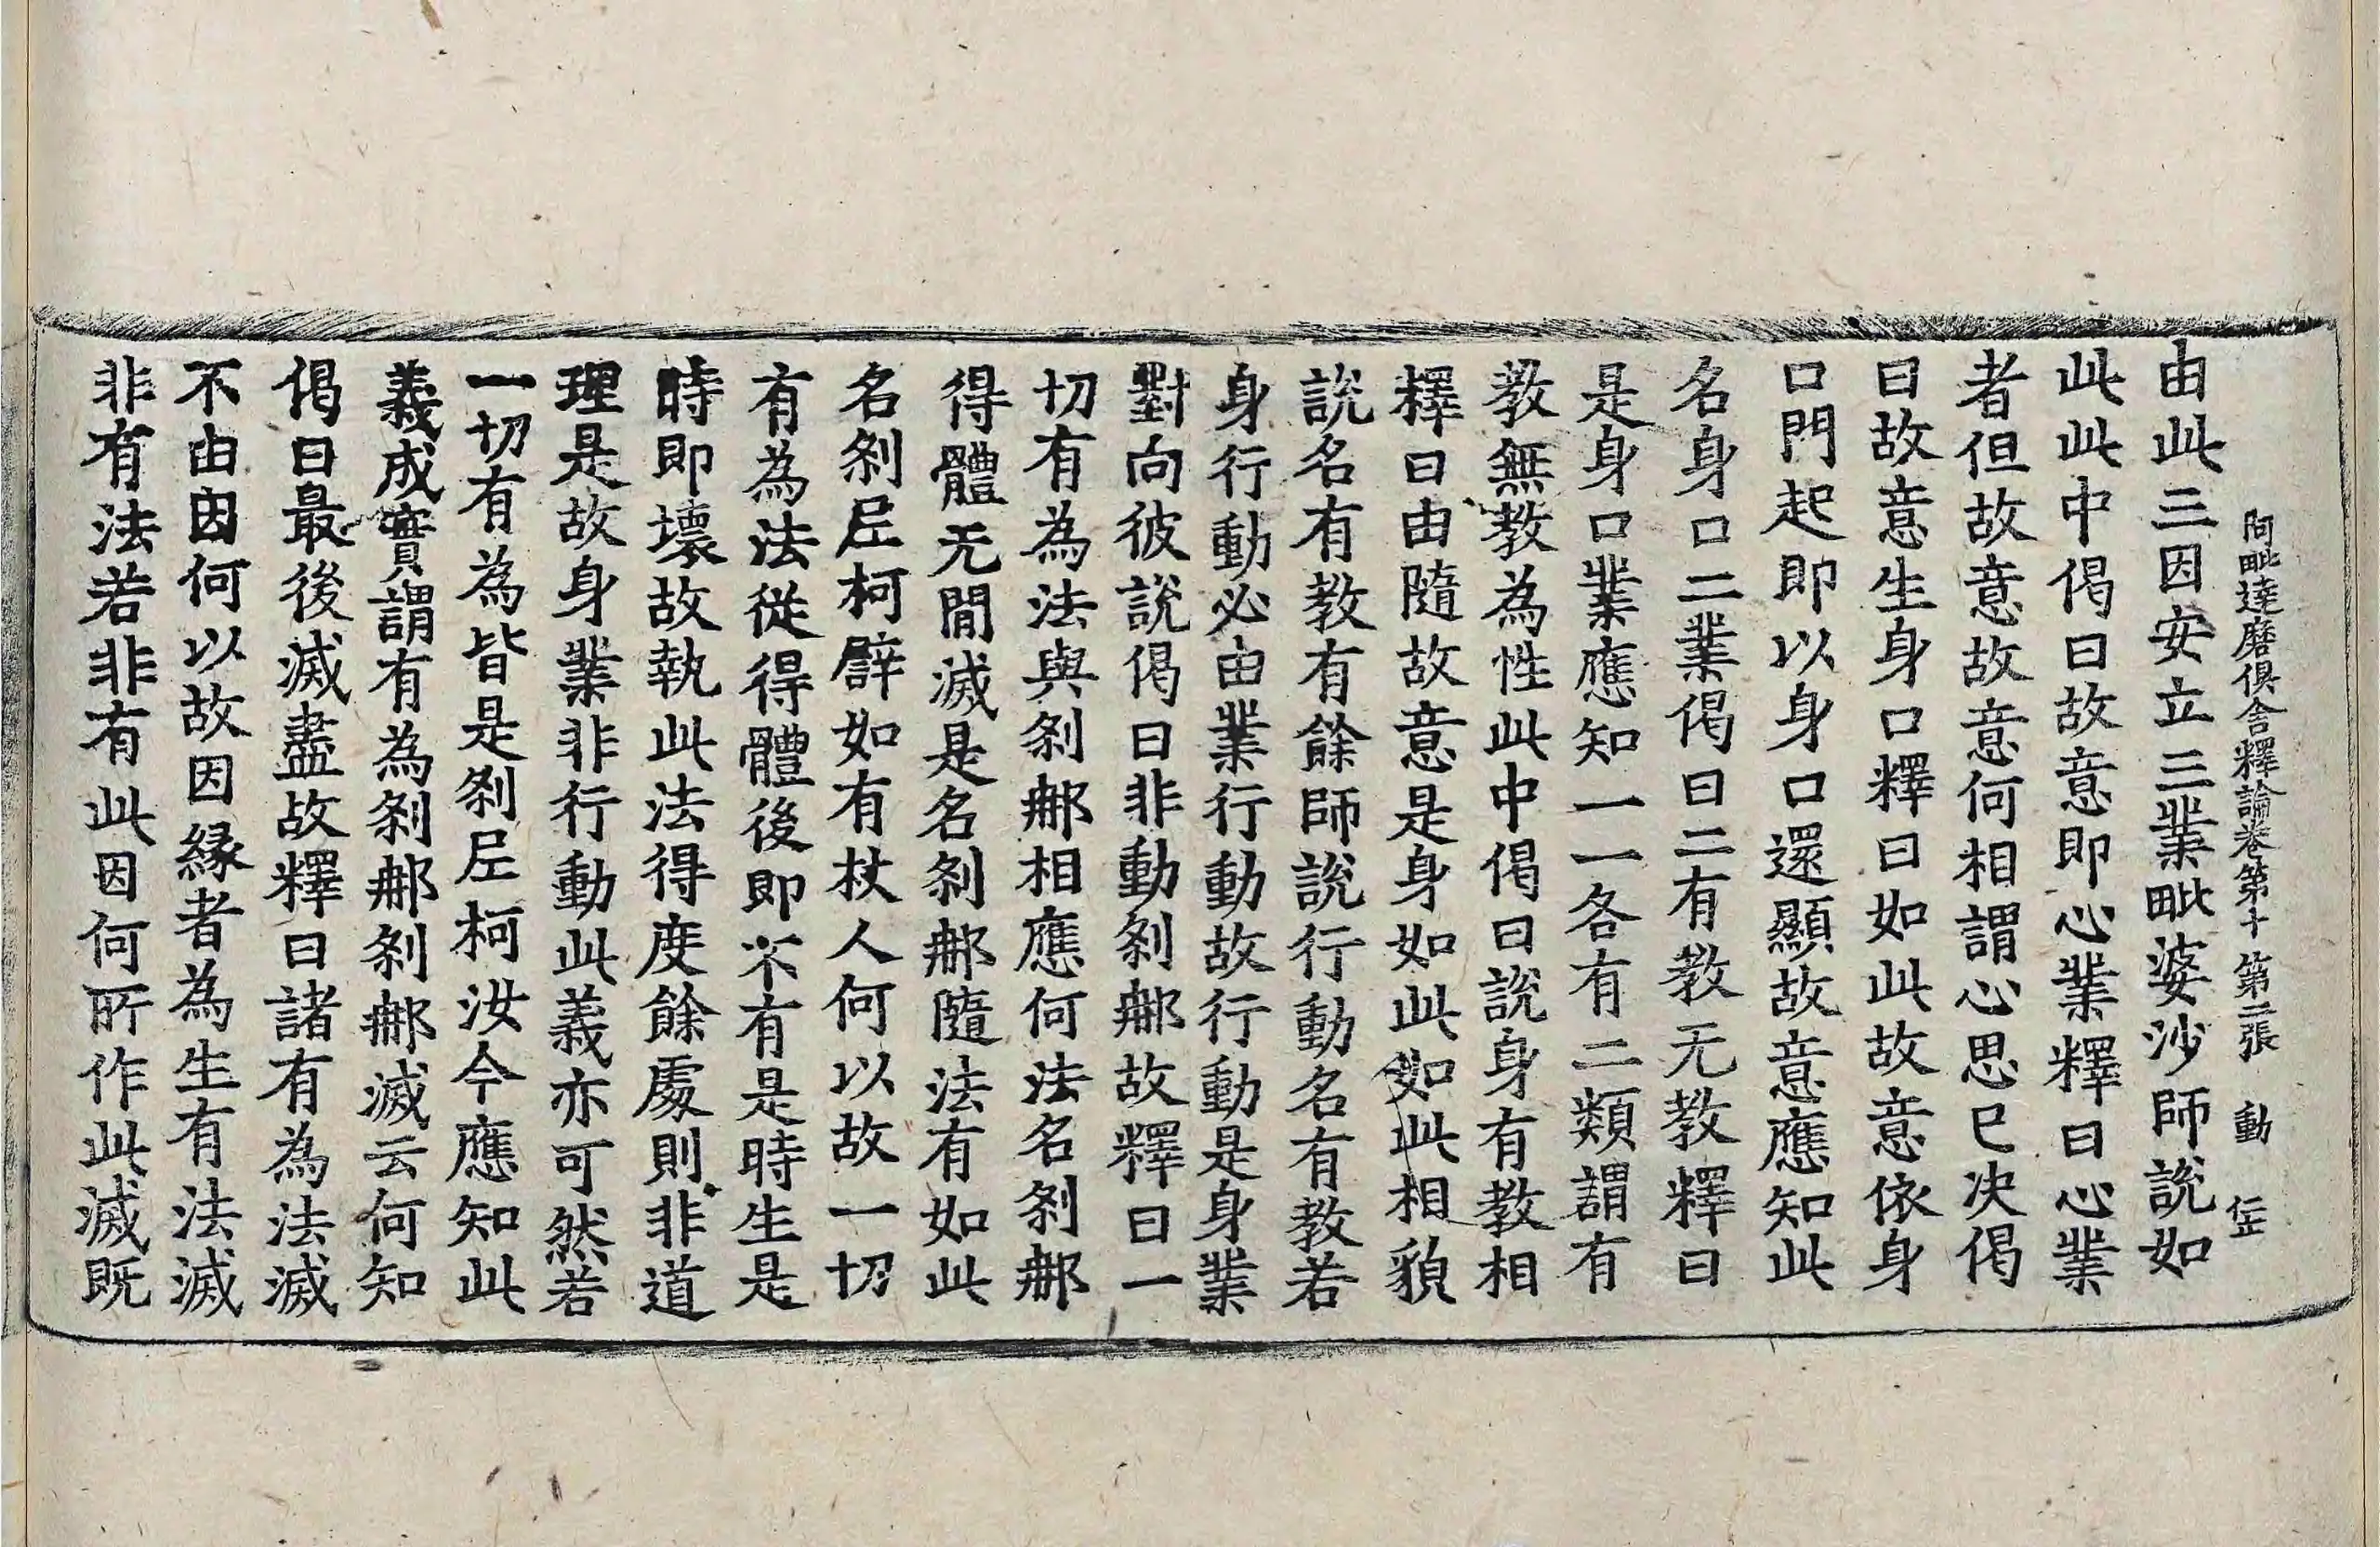 阿毗達磨俱舍釋論卷第十 第二張 動
由此三因安立三業毗婆沙師說如
此此中偈曰故意即心業釋曰心業
者但故意故意何相謂心思已決偈
曰故意生身口釋曰如此故意依身
口門起即以身口還顯故意應知此
名身口二業偈曰二有教无教釋曰
是身口業應知一一各有二類謂有
教無教為性此中偈曰說身有教相
釋曰由隨故意是身如此如此相貌
說名有教有餘師說行動名有教若
身行動必由業行動故行動是身業
對向彼說偈曰非動剎那故釋曰一
切有為法與剎那相應何法名剎那
得體无間滅是名剎那隨法有如此
名剎尼柯譬如有杖人何以故一切
有為法從得體後即不有是時生是
時即壞故執此法得度餘處則非道
理是故身業非行動此義亦可然若
一切有為皆是剎尼柯汝今應知此
義成實謂有為剎那剎那滅云何知
偈曰最後滅盡故釋曰諸有為法滅
不由因何以故因緣者為生有法滅
非有法若非有此因何所作此滅既